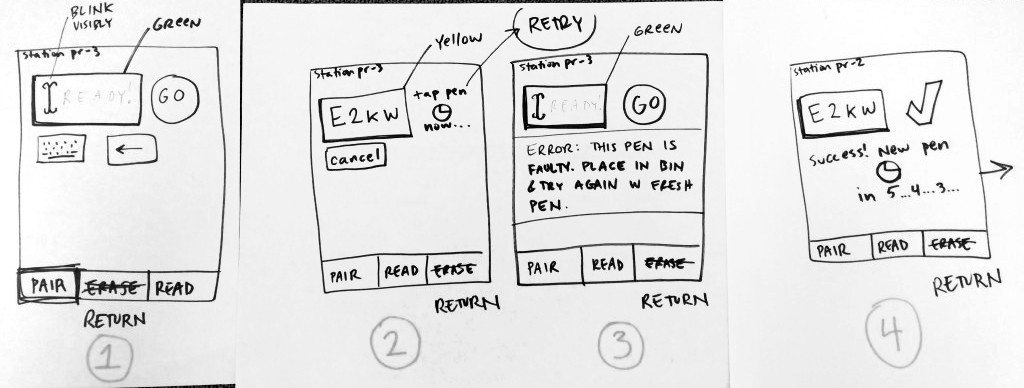 BLINK
VISIBLY
GREEN
station pr-3
READY!
GO
←
PAIR ERASE READ
RETURN
1
RETRY
Yellow
station pr-3
E2KW
tap pen
now...
cancel
PAIR READ ERASE
RETURN
2
GREEN
station pr-3
READY!
GO
ERROR: THIS PEN IS
FAULTY. PLACE IN BIN
& TRY AGAIN W FRESH
PEN.
PAIR READ ERASE
RETURN
3
station pr-2
E2KW
success! New pen
in 5...4...3...
PAIR READ ERASE
RETURN
4